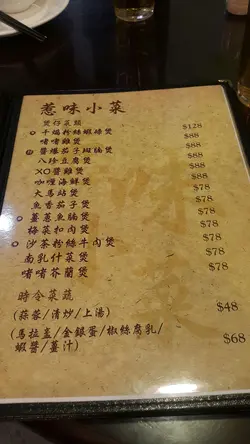 惹味小菜
煲仔菜類
干燒粉絲蝦煲 $128
啫啫雞煲 $88
醬爆茄子斑腩煲 $88
八珍豆腐煲 $88
XO醬雞煲 $88
咖喱海鮮煲 $88
大馬站煲 $78
魚香茄子煲 $78
薑蔥魚腩煲 $78
梅菜扣肉煲 $78
沙茶粉絲牛肉煲 $78
南乳什菜煲 $78
啫啫芥蘭煲 $78
時令菜蔬
(蒜蓉/清炒/上湯) $48
(馬拉盞/金銀蛋/椒絲腐乳/
蝦醬/薑汁) $68